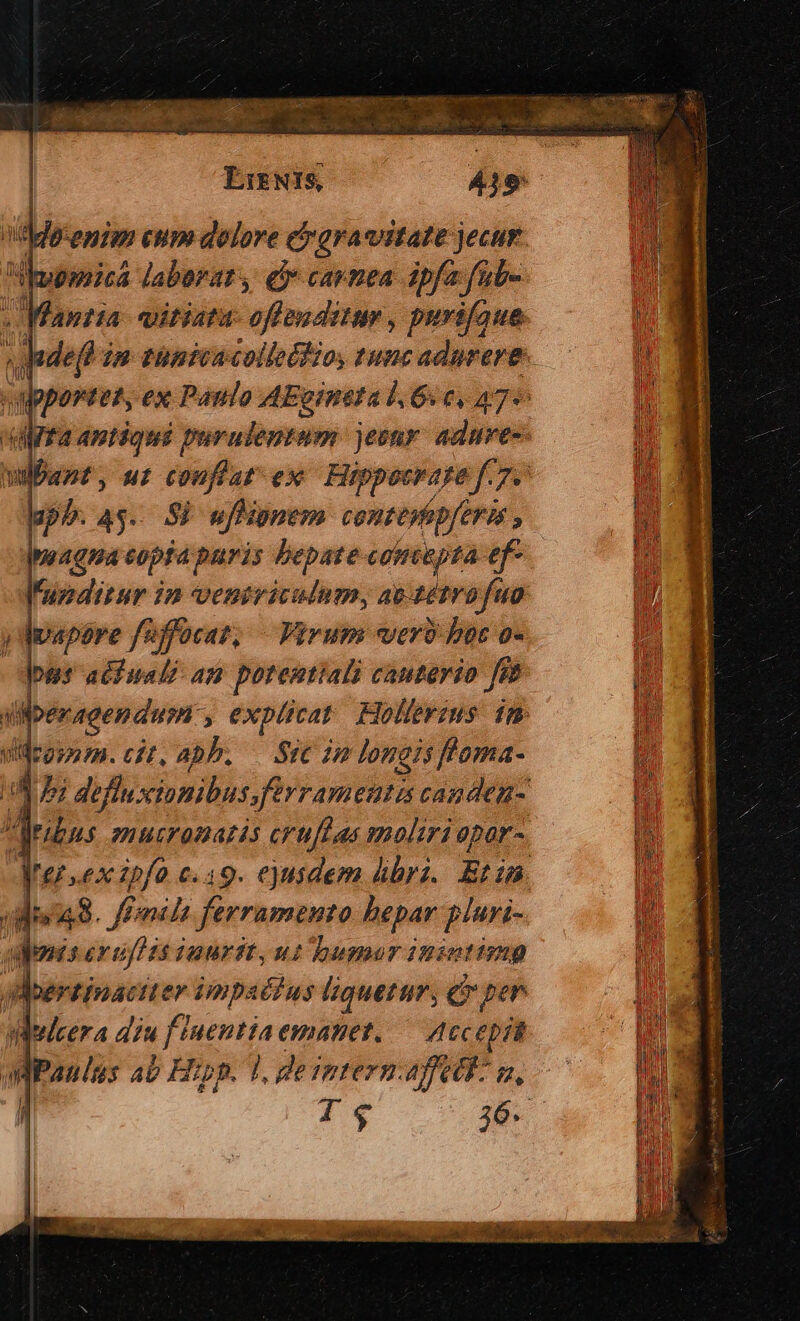 LIENIS, 439
do enim cum dolore & gravitate jecur
vomicâ laborat, & carnea ipsa sub-
stantia vitiata offenditur, purisque
adest in tunica collectio, tunc adurere
oportet, ex Paulo AEgineta l. 6. c. 47.
ita antiqui purulentum jecur adure-
bant, ut constat ex Hippocrate s. 7.
aph. 45. Si ustionem contempseris,
magna copia puris hepate concepta ef-
funditur in ventriculum, ac tetro suo
vapore suffocat. Virum verò hoc o-
pus actuali an potentiali cauterio sit
peragendum, explicat Hollerius in
comm. cit. aph. Sic in longis stoma-
chi defluxionibus, ferramentis canden-
tibus mucronatis crustas moliri opor-
tet, ex ipso c. 19. ejusdem libri. Et in
48. simili ferramento hepar pluri-
mis crustis inurit, ut humor inintimo
pertinaciter impactus liquetur, & per
ulcera diu fluentia emanet. Accepit
Paulus ab Hipp. l. de intern. affect. n.
T 5 36.